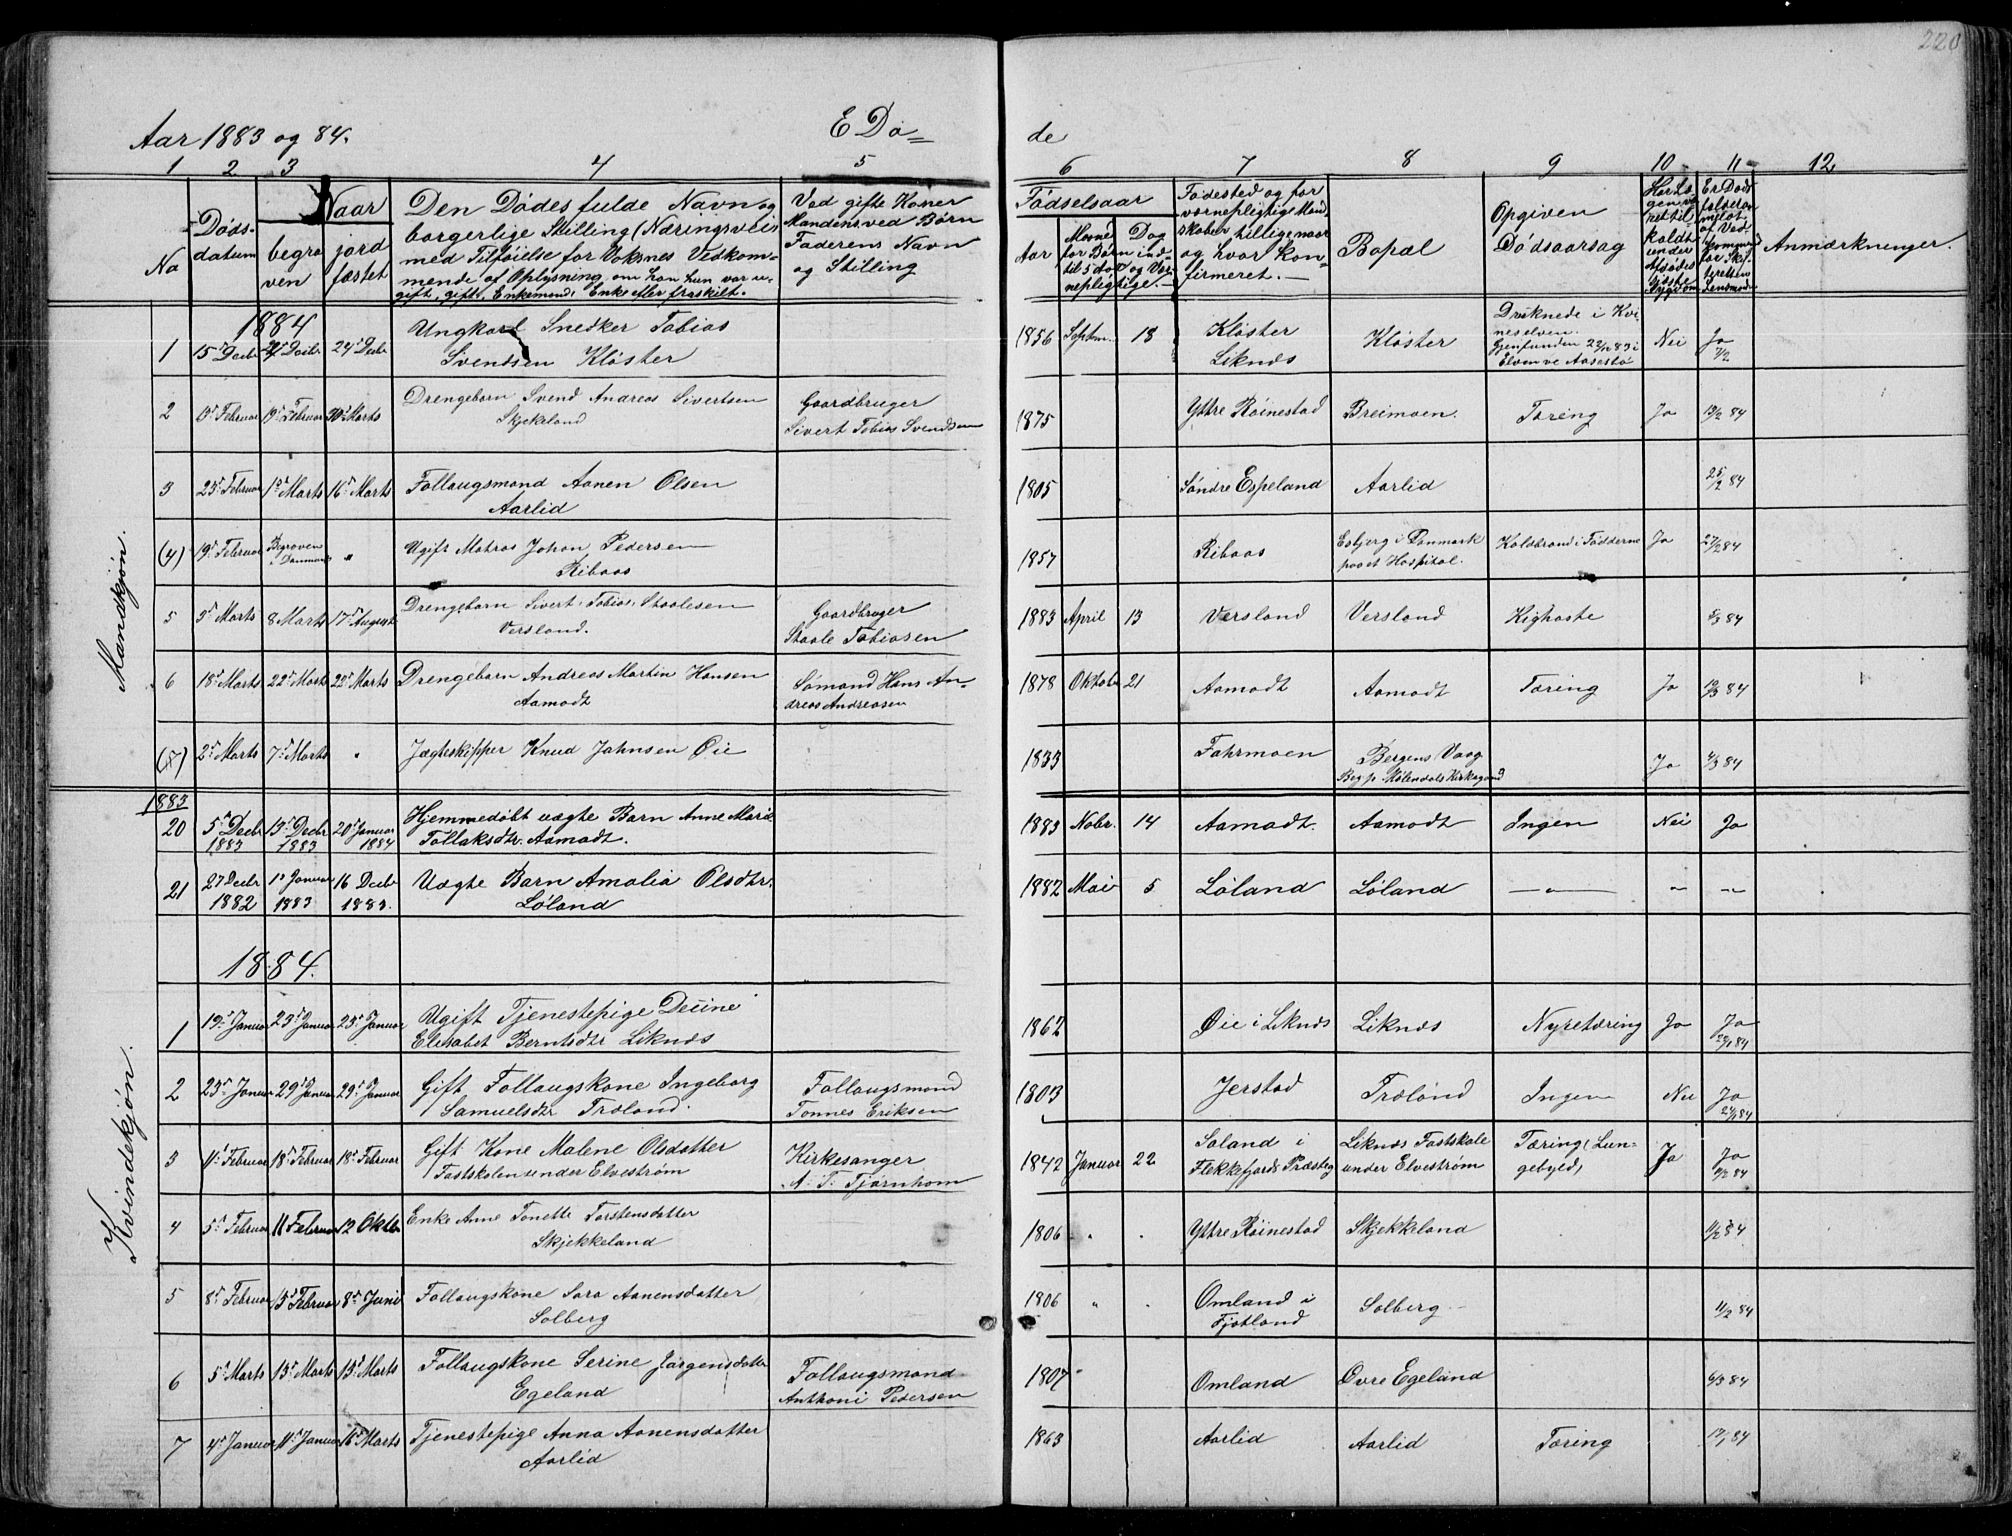 220
Aar 1883 og 84. E Dø= de
1 2 3 4 5 6 7 8 9 10 11 12
No
Døds-
datum
Naar
begra-
ven
jord
fæstet
Den Dødes fulde Navn og
borgerlige Stilling (Næringsvei)
med Tilføielse for Voksnes Vedkom-
mende af Oplysning, om han hun var u-
gift, gift, Enkemand, Enke eller fraskilt.
Ved gifte Koner
Mandens, ved Børn
Faderens Navn
og Stilling
Fødselsaar
Aar
Maaned
for Børn ind-
til 5 Aar og Vær-
nepligtige.
Dag
Fødested og for
værnepligtige Mand-
skaber tillige naar
og hvor kon-
firmeret.
Bopæl
Opgiven
Dødsaarsag
Anmærkninger.
Mandkjøn.
1884
1 15' Decbr 24' Decbr 24' Decbr Ungkarl Snedker Tobias
Svendsen Kløster
1856 Septem. 18 Kløster
Liknes
Kløster
Druknede i Kvi-
neselven.
Gjenfunden 22/12 83 i
Elven ve Aasestø
Nei Ja
7/2
2 13' Februar 19' Februar 30' Marts Drengebarn Svend Andreas Sivertsen
Skjekeland
Gaardbruger
Sivert Tobias Svendsen
1875 Yttre Røinestad Breimoen. Tæring Ja 13/2 84
3 23' Februar 1' Marts 16' Marts Follaugsmand Aanen Olsen
Aarlid
1805 Søndre Espeland Aarlid 25/2 84
(4) 19' Februar Begraven
i Danmark " Ugift Matros Johan Pedersen
Ribaas
1857 Ribaas Esbjerg i Danmark
paa et Hospital.
Koldbrand i Fødderne Ja 27/2 84
5 3' Marts 8 Marts 17' August Drengebarn Sivert Tobias Staalesen
Versland.
Gaardbruger
Staale Tobiasen
1883 April 13 Versland Versland Kighoste 5/3 84
6 18' Marts 22' Marts 22' Marts Drengebarn Andreas Martin Hansen
Aamodt
Sømand Hans An-
dreas Andreasen
1878 Oktober 21 Aamodt Aamodt Tæring Ja 19/3 84
(7) 2' Marts 7' Marts " Jægteskipper Knud Johnsen Øie
1833 Fahrmoen Bergens Vaag
Beg. p. Mølendals Kirkegaard
Ja 4/3 84
Kvindekjøn.
1883
20 5' Decbr
1883 13' Decbr
1883 20' Januar
1884 Hjemmedøbt uægte Barn Anne Marie
Tollaksdtr. Aamodt.
1883 Nobr. 14 Aamodt. Aamodt Ingen Nei Ja
21 27 Decbr
1882 1' Januar
1883 16 Decbr
1883. Uægte Barn Amalia Olsdtr.
Løland
1882 Mai 5 Løland Løland — " — " — " —
1884.
1 19' Januar 23' Januar 23' Januar Ugift Tjenestepige Deiine
Elisabet Berntsdtr Liknes
1862 Øie i Liknes Liknes Nyretæring Ja Ja
22/1 84
2 23' Januar 29' Januar 29' Januar Gift Follaugskone Ingeborg
Samuelsdtr Træland.
Follaugsmand
Tønnes Eriksen
1803 Jerstad Træland Ingen Nei Ja
24/1 84
3 11' Februar 18' Februar 18' Februar Gift Kone Malene Olsdatter
Fastskolen under Elvestrøm
Kirkesanger
A. T. Tjørnhom
1842 Januar 22 Saland i
Flekkefjords Præsteg
Liknes Fastskole
under Elvestrøm
Tæring (Lun-
gebyld)
Ja Ja
11/2 84
4 5' Februar 11 Februar 12 Oktb. Enke Anne Tonette Torstensdatter
Skjekkeland
1806 " " Yttre Røinestad Skjekkeland 11/2 84
5 8' Februar 15' Februar 8' Juni Follaugskone Sara Aanensdatter
Solberg
1806 " " Omland i
Fjotland
Solberg 11/2 84
6 5' Marts 13' Marts 13' Marts Follaugskone Serine Jørgensdatter
Egeland
Follaugsmand
Anthoni Pedersen
1807 " Omland Øvre Egeland 6/3 84
7 4' Januar 11' Januar 16' Marts Tjenestepige Anna Aanensdatter
Aarlid
1863 Aarlid Aarlid Tæring 17/1 84